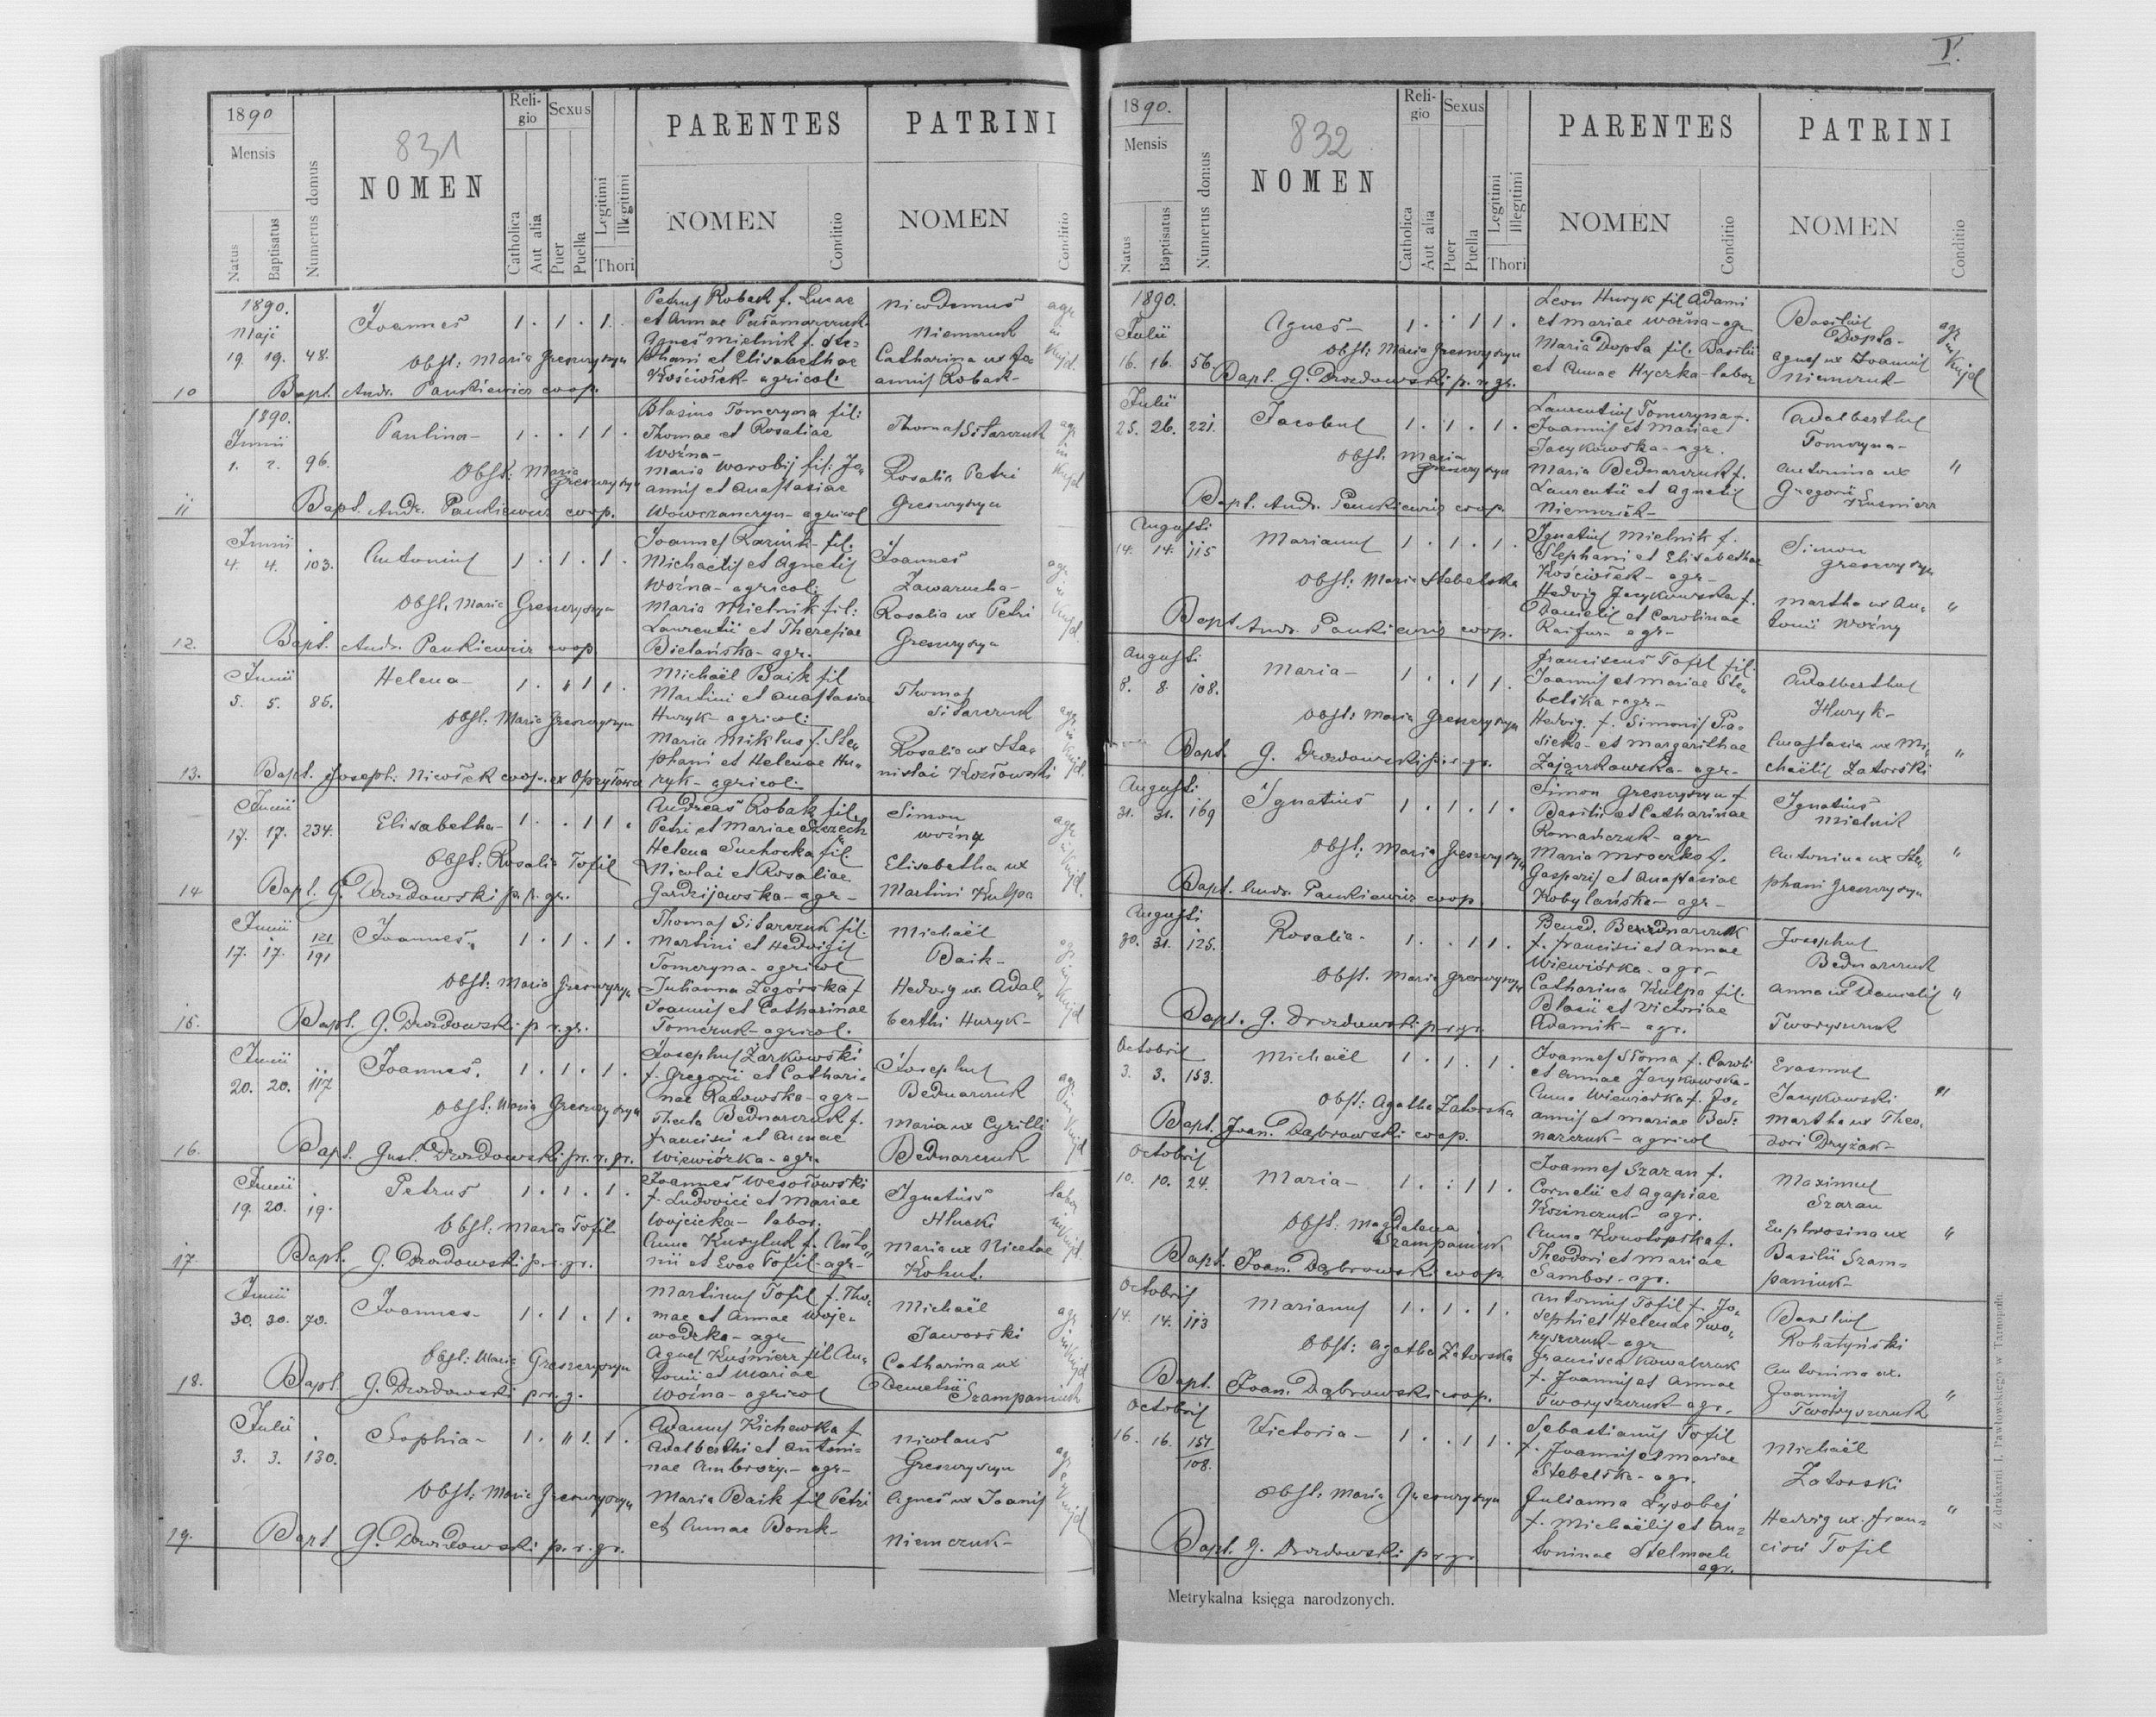 1890
Mensis
Natus
Baptisatus
Numerus domus
831
NOMEN
Religio
Catholica
Aut alia
Sexus
Puer
Puella
Legitimi
Illegitimi
Thori
PARENTES
NOMEN
Conditio
PATRINI
NOMEN
Conditio
1890.
Maji
19. 19. 48.
Joannes
1 . 1 . 1 .
Obst: Maria Greszczyszyn
10 Bapt. Andr. Pankiewicz coop.
Petrus Robak f. Lucae
et Annae
Agnes Mielnik f. Ste-
phani et Elisabethae
Kościółek - agricol.
Nicodemus
Niemczuk
Catharina ux Jo-
annis Robak -
agr in Kujd.
1890.
Junii
1. 2. 96.
Paulina -
1 . . 1 1 .
Obst: Maria
Greszczyszyn
11 Bapt. Andr. Pankiewicz coop.
Blasius Tomczyna fil:
Thomae et Rosaliae
Woźna -
Maria Worobij fil: Jo-
annis et Anastasiae
Wowczanczyn - agricol
Thomas Sitarczuk
Rosalia Petri
Greszczyszyn
agr in Kujd
Junii
4. 4. 103.
Antonius
1 . 1 . 1 .
Obst. Maria Greszczyszyn
12. Bapt. Andr. Pankiewicz coop
Joannes Raziuk - fil.
Michaelis et Agnetis
Woźna - agricol:
Maria Mielnik fil:
Laurentii et Theresiae
Bielańska - agr.
Joannes
Zawarucha -
Rosalia ux Petri
Greszczyszyn
agr in Kujd
Junii
5. 5. 86.
Helena -
1 . " 1 1 .
Obst: Maria Greszczyszyn
13. Bapt. Joseph: Niciołek coop. ex Opryłowce
Michaël Baik fil
Martini et Anastasiae
Huryk - agricol:
Maria Miklus f. Ste-
phani et Helenae Hu-
ryk - agricol.
Thomas
Sitarczuk
Rosalia ux Sta-
nislai Kozłowski
agr in Kujd.
Junii
17. 17. 234.
Elisabetha -
1 . . 1 1 .
Obst: Rosalia Tofil
14 Bapt. G. Drozdowski p. r. gr.
Andreas Robak fil.
Petri et Mariae Szzech
Helena Suchocka fil.
Nicolai et Rosaliae
Gardzijewska - agr -
Simon
Woźny
Elisabetha ux
Martini Kulpa
agr in Kujd.
Junii
17. 17. 121
191
Joannes.
1 . 1 . 1 .
Obst: Maria Greszczyszyn
15. Bapt. G. Drozdowski p r. gr.
Thomas Sitarczuk fil.
Martini et Hedvigis
Tomczyna - agricol
Julianna Zagórska f
Joannis et Catharinae
Tomczuk - agricol.
Michaël
Baik -
Hedvig ux Adal-
berthi Huryk -
Junii
20. 20. 117
Joannes.
1 . 1 . 1 .
Obst: Maria Greszczyszyn
16. Bapt. Gust. Drozdowski pr. r. gr.
Josephus Żarkowski
f. Gregorii et Cathari-
nae Rakowska - agr -
Thecla Bednarczuk f.
Francisci et Annae
Wiewiórka - agr.
Josephus
Bednarczuk
Maria ux Cyrilli
Bednarczuk
agr in Kujd
Junii
19. 20. 19.
Petrus
1 . 1 . 1 .
Obst: Maria Tofil
17. Bapt. G. Drozdowski p. r. gr.
Joannes Wesołowski
f. Ludovici et Mariae
Wojcicka - labor.
Anna Kuryluk f. Anto-
nii et Evae Tofil - agr -
Ignatius
Hlucki
Maria ux Nicetae
Kohut.
labor in Kujd.
Junii
30. 30. 70.
Joannes -
1 . 1 . 1 .
Obst: Maria Greszczyszyn
18. Bapt G. Drozdowski p r. g.
Martinus Tofil f. Tho-
mae et Annae Woje-
wodzka - agr
Agnes Kuśnierz fil An-
tonii et Mariae
Woźna - agricol
Michaël
Jaworski
Catharina ux
Demetrii
Szampaniuk
agr in Kujd
Julii
3. 3. 130.
Sophia -
1 . " 1 . 1 .
Obst: Maria Greszczyszyn
19. Bapt G. Drozdowski p. r. gr.
Adamus Kichewka f.
Adalberthi et Antoni-
nae Ambroży - agr -
Maria Baik fil Petri
et Annae Bonk -
Nicolaus
Greszczyszyn
Agnes ux Joanis
Niemczuk -
agr in Kujd
V.
1890.
Mensis
Natus
Baptisatus
Numerus domus
832
NOMEN
Religio
Catholica
Aut alia
Sexus
Puer
Puella
Legitimi
Illegitimi
Thori
PARENTES
NOMEN
Conditio
PATRINI
NOMEN
Conditio
1890.
Julii
16. 16. 56.
Agnes -
1 . . 1 1 .
Obst: Maria Greszczyszyn
Bapt. G. Drozdowski p. r. gr.
Leon Huryk fil Adami
et Mariae Woźna - agr
Maria Dopta fil. Basilii
et Annae Hyczka - labor
Basilius
Dopta -
Agnes ux Joannis
Niemczuk -
agr in Kujd
Julii
25. 26. 221.
Jacobus
1 . 1 . 1 .
Obst. Maria
Greszczyszyn
Bapt. Andr. Pankiewicz coop.
Laurentius Tomczyna f.
Joannis et Mariae
Jacykowska - agr.
Maria Bednarczuk f.
Laurentii et Agnetis
Niemczuk -
Adalberthus
Tomczyna -
Antonina ux
Gregorii
Kusnierz
"
Augusti
14. 14. 115
Marianus
1 . 1 . 1 .
Obst: Maria Stebelska
Bapt Andr. Pankiewicz coop.
Ignatius Mielnik f.
Stephani et Elisabethae
Kościółek - agr -
Hedvig Jacykowska f.
Danielis et Carolinae
Raifur - agr -
Simon
Greszczyszyn
Martha ux An-
tonii Woźny
"
Augusti
8. 8. 108.
Maria -
1 . . 1 1 .
Obst: Maria Greszczyszyn
Bapt. G. Drozdowski p. r. gr.
Franciscus Tofil fil.
Joannis et Mariae Ste-
belska - agr -
Hedvig. f. Simonis Pa-
sieka - et Margarithae
Zajączkowska - agr -
Adalberthus
Huryk -
Anastasia ux Mi-
chaëlis Zatorski
"
Augusti
31. 31. 169
Ignatius
1 . 1 . 1 .
Obst: Maria Greszczyszyn
Bapt. Andr. Pankiewicz coop.
Simon Greszczyszyn f.
Basilii et Catharinae
Romańczuk - agr
Maria Mroczko f.
Gasparis et Anastasiae
Kobylańska - agr -
Ignatius
Mielnik
Antonina ux Ste-
phani Greszczyszyn
"
Augusti
30. 31. 125.
Rosalia -
1 . . 1 1 .
Obst. Maria Greszczyszyn
Bapt. G. Drozdowski p r gr.
Bened. Bednarczuk
f. Francisci et Annae
Wiewiórka - agr -
Catharina Kulpa fil.
Blasii et Victoriae
Adamik - agr.
Josephus
Bednarczuk
Anna ux Danielis
Tworyszczuk
"
Octobris
3. 3. 153.
Michaël
1 . 1 . 1 .
Obst: Agatha Zatorska
Bapt. Joan. Dąbrowski coop.
Joannes Słoma f. Caroli
et Annae Jacykowska -
Anna Wiewiorka f. Jo-
annis et Mariae Bed-
narczuk - agricol
Erasmus
Jacykowski
Martha ux Theo-
dori Dryżak -
"
Octobris
10. 10. 24.
Maria -
1 . : 1 1 .
Obst: Magdalena
Szampaniuk
Bapt. Joan. Dąbrowski coop.
Joannes Szaran f.
Cornelii et Agapiae
agr.
Anna Konotopska f.
Theodori et Mariae
Sambor - agr.
Maximus
Szaran
Euphrosina ux
Basilii Szam-
paniuk -
"
Octobris
14. 14. 113
Marianus
1 . 1 . 1 .
Obst: Agatha Zatorska
Bapt. Joan. Dąbrowski coop.
Antonius Tofil f. Jo-
sephi et Helenae Two-
ryszczuk - agr
Francisca Kowalczuk
f. Joannis et Annae
Tworyszczuk - agr.
Basilius
Rohatyński
Antonina ux.
Joannis
Tworyszczuk
"
Octobris
16. 16. 151
108.
Victoria -
1 . . 1 1 .
Obst. Maria Greszczyszyn
Bapt. G. Drozdowski p r gr
Sebastianus Tofil
f. Joannis et Mariae
Stebelska - agr.
Julianna Łysobej
f. Michaëlis et An-
toninae Stelmach
agr.
Michaël
Zatorski
Hedvig ux. Fran-
cisci Tofil
"
Metrykalna księga narodzonych.
Z drukarni I. Pawłowskiego w Tarnopolu.